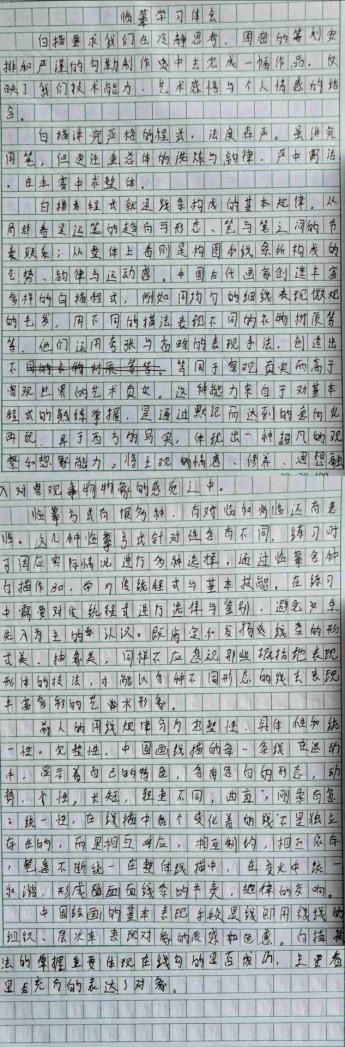 临摹学习体会
白描要求我们在冷静思考、周密的筹划安
排和严谨的勾勒制作当中去完成一幅作品,反
映了我们技术与能力、艺术感悟与个人情感的结
合。
白描讲究严格的程式,法度森严。虽讲究
用笔,但更注重整体的洗练与韵律,严中寓活
,在丰富中求整体。
白描着程式就是线条构成的基本规律。从
局部看是运笔的趋向与形态、笔与笔之间的节
奏联系;从整体上看则是构图和线条所构成的
气势、韵律与运动感。中国古代画家创造丰富
多样的白描程式,例如用均匀的细线表现微观
的毛发,用不同的描法表现不同的衣物材质等
等。他们运用夸张与省略的表现手法,创造出
不同的衣物材质等等,等同于客观真实而高于
客观世界的艺术真实。这种能力来自于对基本
程式的熟练掌握,是通过默记而达到的意向化
再现,异于西方的写实,体现出一种超凡的观
察和想象能力。将主观的情感、修养、思想融
入对客观事物物象的感觉之中。
临摹方式有很多种,有对临和背临还有意
临。这几种临摹方式针对性各有不同,练习时
可因应实际情况进行多种选择。通过临摹各种
白描作品,学习传统程式与基本技能。在练习
中需要对传统程式进行选择与鉴别,避免产生
先入为主的认识。既肯定和发扬线条的形
式美、抽象美,同样不应忽视那些概括地表现
形体的技法,才能以多种不同形态的线去表现
丰富多彩的艺术形象。
前人的用线规律分为完整性、具体性和统
一性。完整性,中国画线描的每一条线在运动
中,显示着自己的特色,多有各自的形态,动
势、个性,长短,粗重不同,曲直,刚柔有意
;统一性,在线描中各个变化着的线不是独立
存在的,而是相互呼应,相互制约,相互依存
,笔意不断统一在整体线描中,在变化中统一
和谐,形成画面线条的节奏,旋律的交响。
中国绘画的基本表现手段是线即用线线的
组织、层次来表现对象的质感和色感。白描技
法的掌握主要体现在线勾的是否成功,主要看
是否充分的表达了对象。